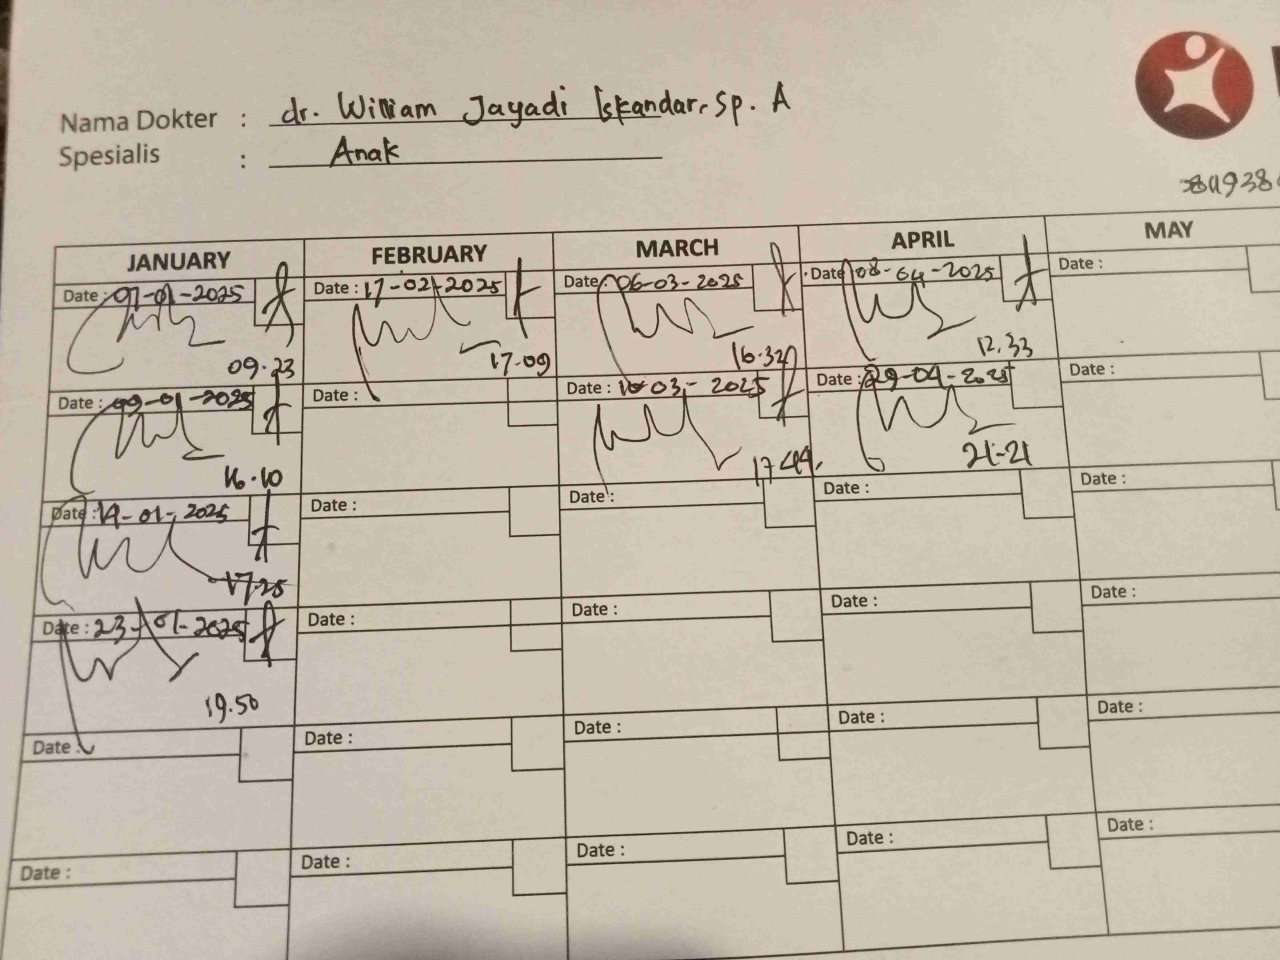 Nama Dokter : dr. William Jayadi Iskandar, Sp. A
Spesialis : Anak
JANUARY FEBRUARY MARCH APRIL MAY
Date : 07-01-2025 Date : 17-02-2025 Date : 06-03-2025 Date : 08-04-2025 Date :
09.23 17.09 16.32 12.33
Date : 09-01-2025 Date : Date : 10-03-2025 Date : 29-04-2025 Date :
16.10 17 44. 21-21
Date : 14-01-2025 Date : Date : Date : Date :
17.25
Date : 23-01-2025 Date : Date : Date : Date :
19.50
Date : Date : Date : Date : Date :
Date : Date : Date : Date : Date :